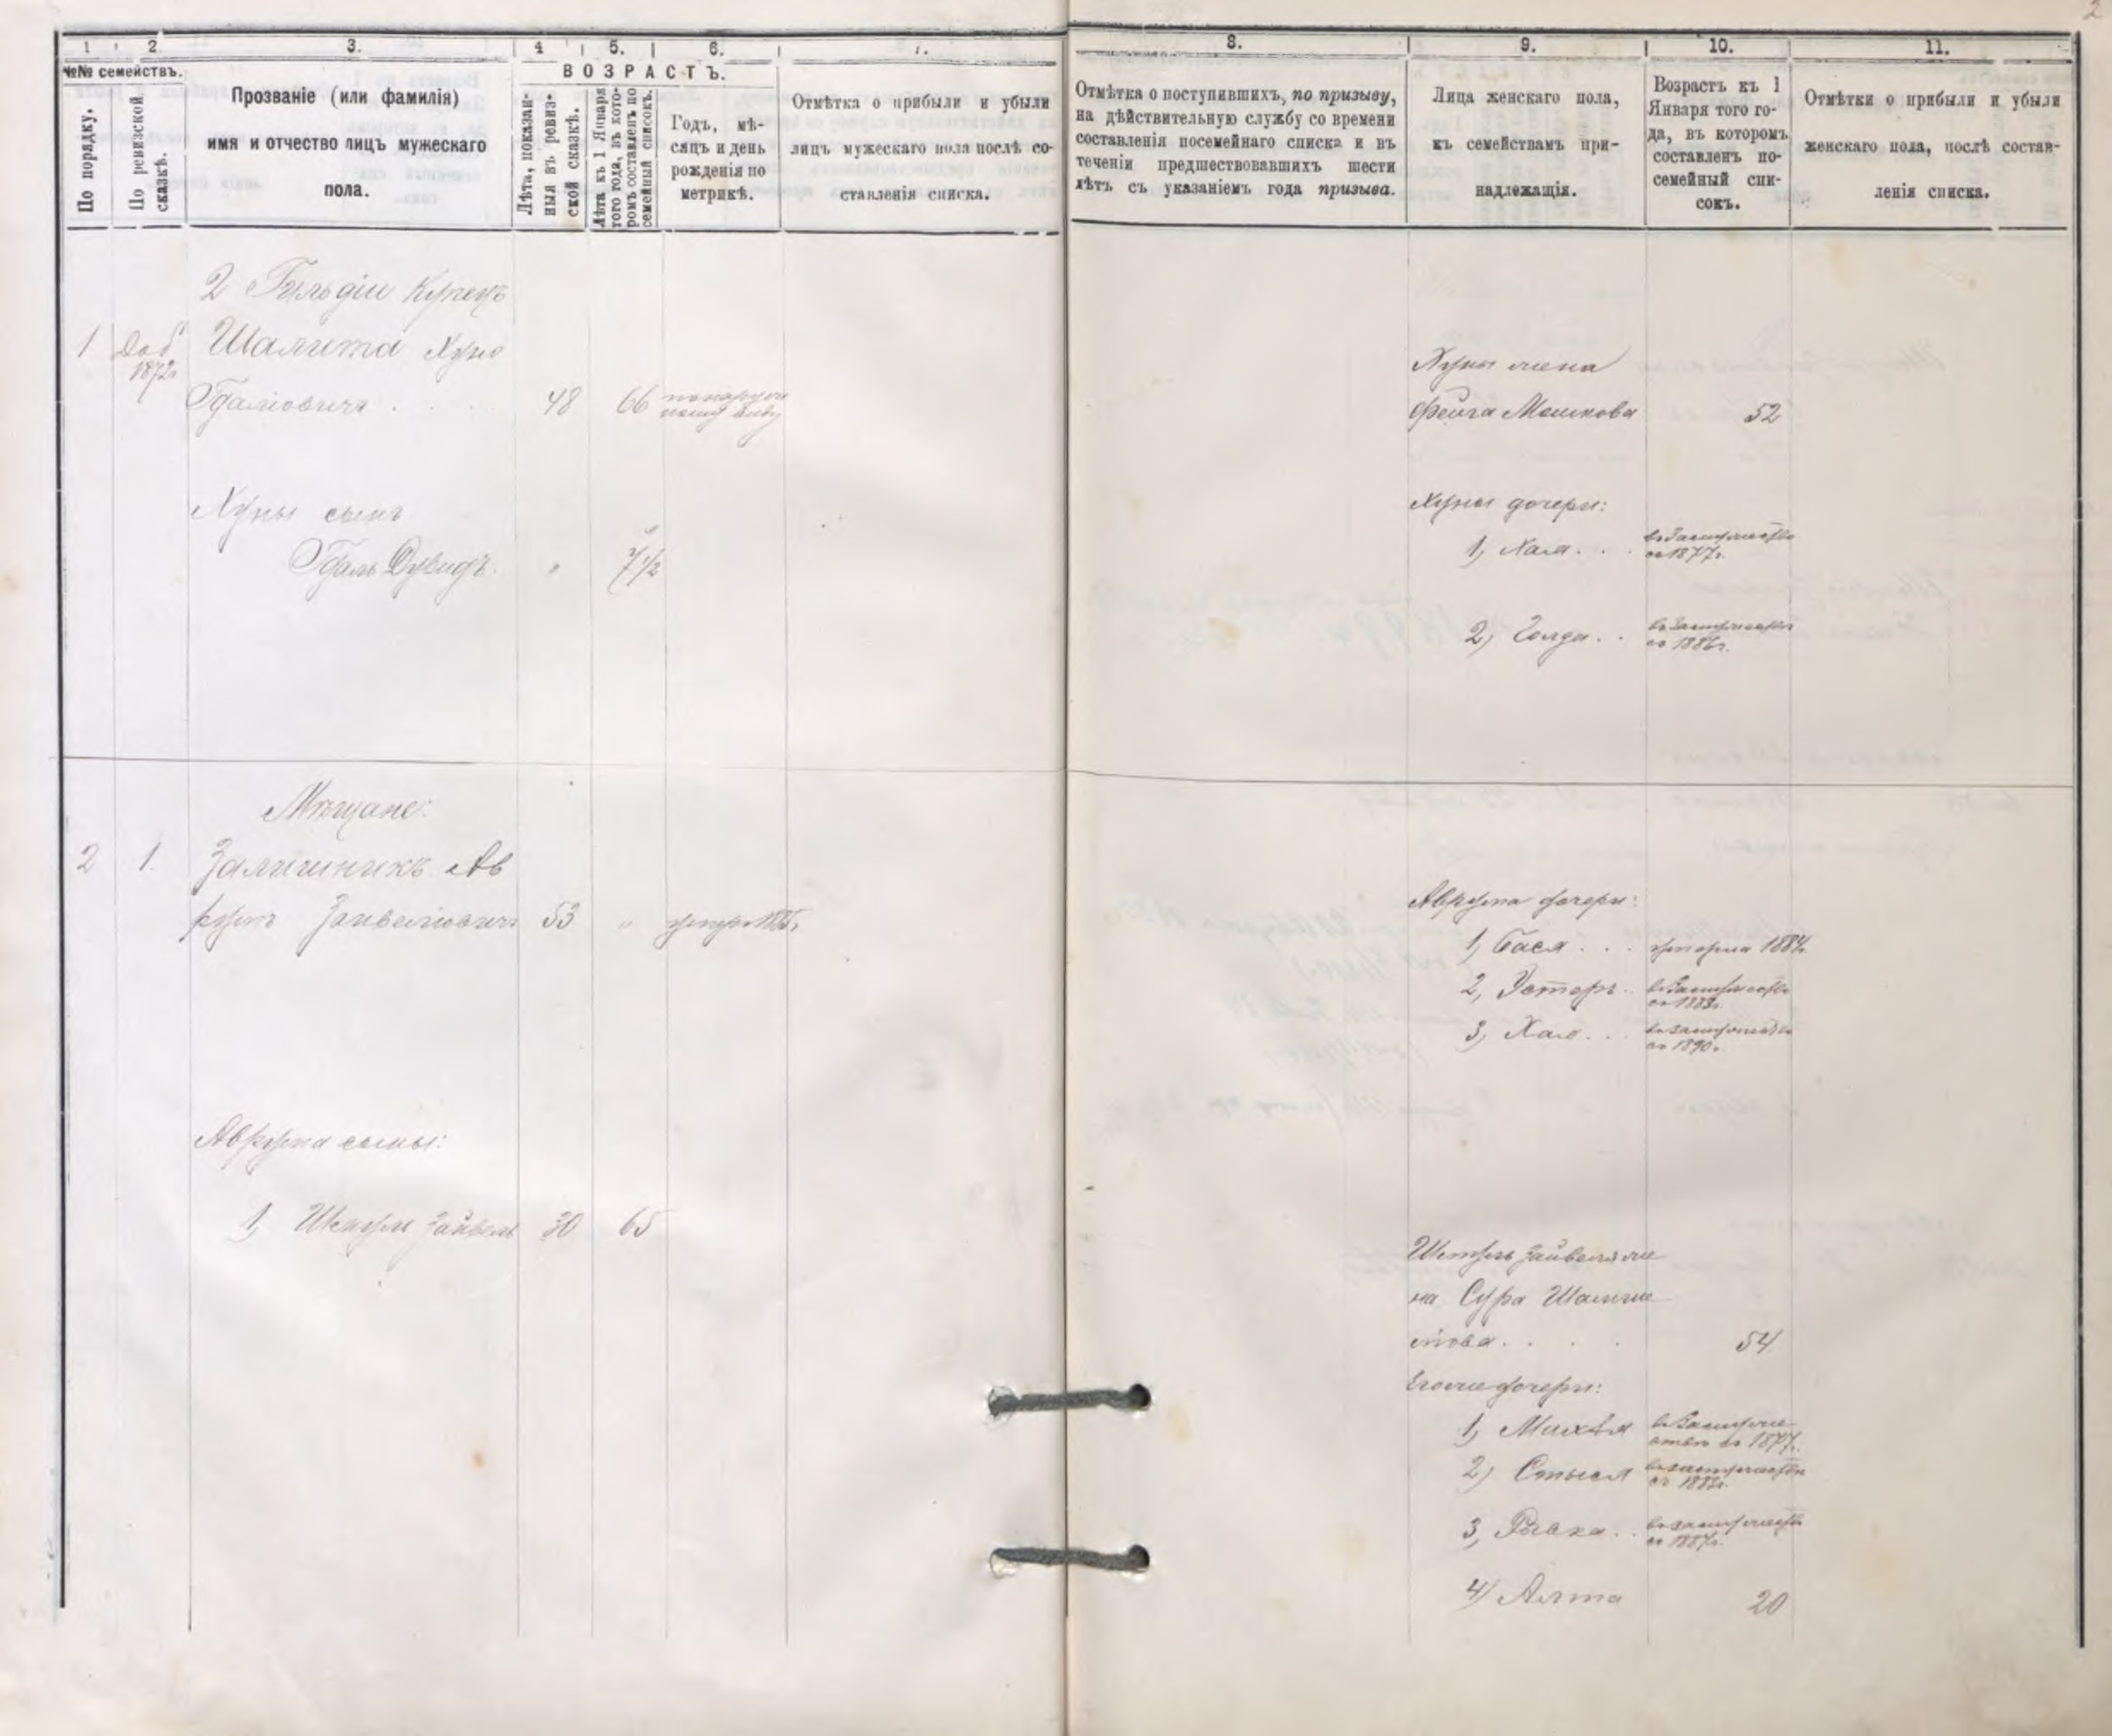 2
1
2
3.
4
5.
6.
7.
№№ семействъ.
По порядку.
По ревизской сказкѣ.
Прозваніе (или фамилія)
имя и отчество лицъ мужескаго
пола.
ВОЗРАСТЪ.
Лѣта, показан-
ныя въ ревиз-
ской сказкѣ.
Лѣта къ 1 Января
того года, въ кото-
ромъ составленъ по
семейный списокъ.
Годъ, мѣ-
сяцъ и день
рожденія по
метрикѣ.
Отмѣтка о прибыли и убыли
лицъ мужескаго пола послѣ со-
ставленія списка.
2 Гильдіи Купецъ
1 Доб Шалита Хуно
1872г
Гдаліовичъ . . . 48 66 по наружн
Хуны сынъ
Гдаль Дувидъ. " 7 1/2
Мѣщане:
2 1. Залишникъ Ав
румъ Зайвеліовичъ 53 " умеръ
Аврума сыны:
1, Зайвель 30 65
8.
9.
10.
11.
Отмѣтка о поступившихъ, по призыву,
на дѣйствительную службу со времени
составленія посемейнаго списка и въ
теченіи предшествовавшихъ шести
лѣтъ съ указаніемъ года призыва.
Лица женскаго пола,
къ семействамъ при-
надлежащія.
Возрастъ къ 1
Января того го-
да, въ которомъ
составленъ по-
семейный спи-
сокъ.
Отмѣтки о прибыли и убыли
женскаго пола, послѣ состав-
ленія списка.
Хуны жена
Фейга Мошкова 52
Хуны дочери:
1, Хая . . въ замужествѣ
съ 1877г.
2, Голда . . въ замужествѣ
съ 1886г.
Аврума дочери:
1, Бася . . . умерла 1884г.
2, Эстеръ . въ замужествѣ
съ 1883г.
3, Хая . . . въ замужествѣ
съ 1890г.
Зайвеля же
на Сура
. . . 54
Его же дочери:
1, въ замуже-
ствѣ съ 1877г.
2) Стыся въ замужествѣ
съ 1882г.
3, Рывка . . въ замужествѣ
съ 1887г.
4) Алта 20